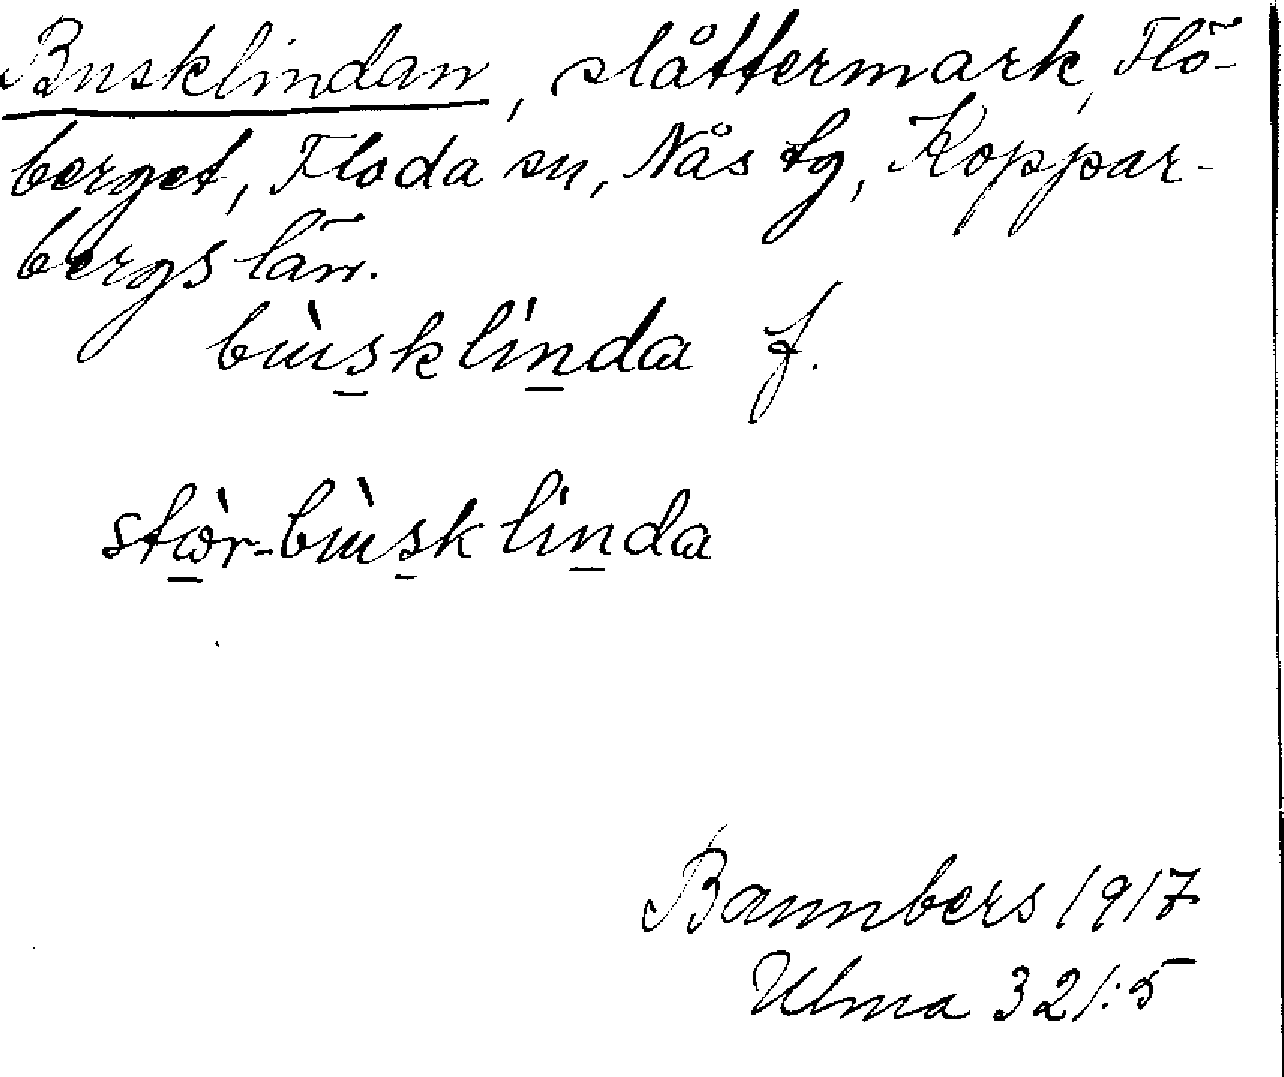 Busklindan, slåttermark, Flö-
berget, Floda sn, Nås tg, Koppar-
bergs län.
bùsklinda f.
stòr-bùsklinda
Bannbers 1917
Ulma 321:5